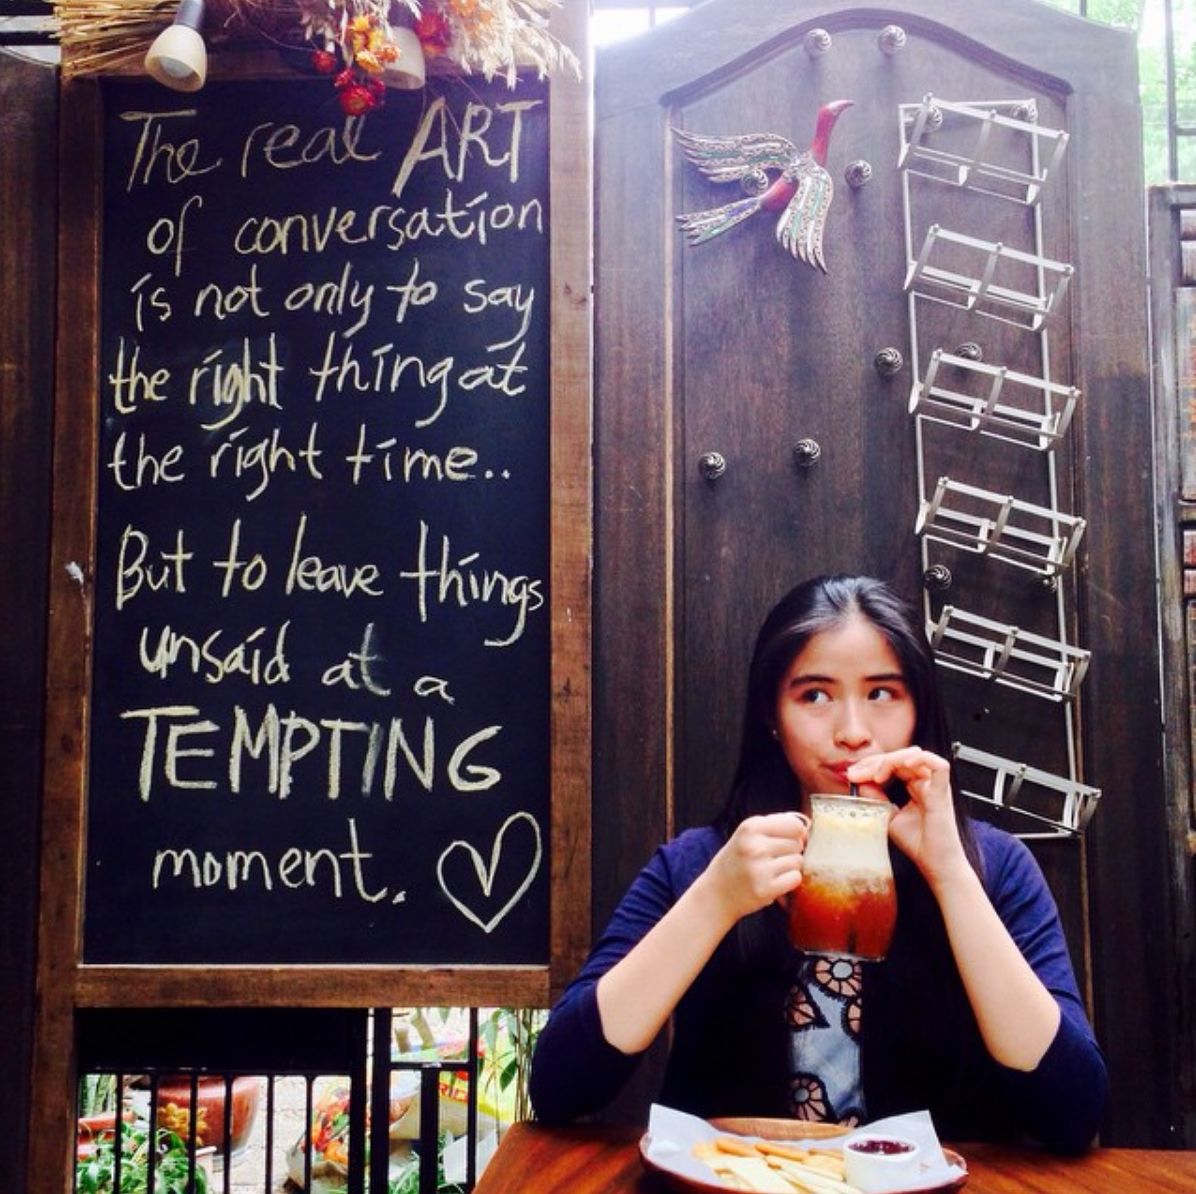 The real ART
of conversation
is not only to say
the right thing at
the right time..
But to leave things
unsaid at a
TEMPTING
moment.